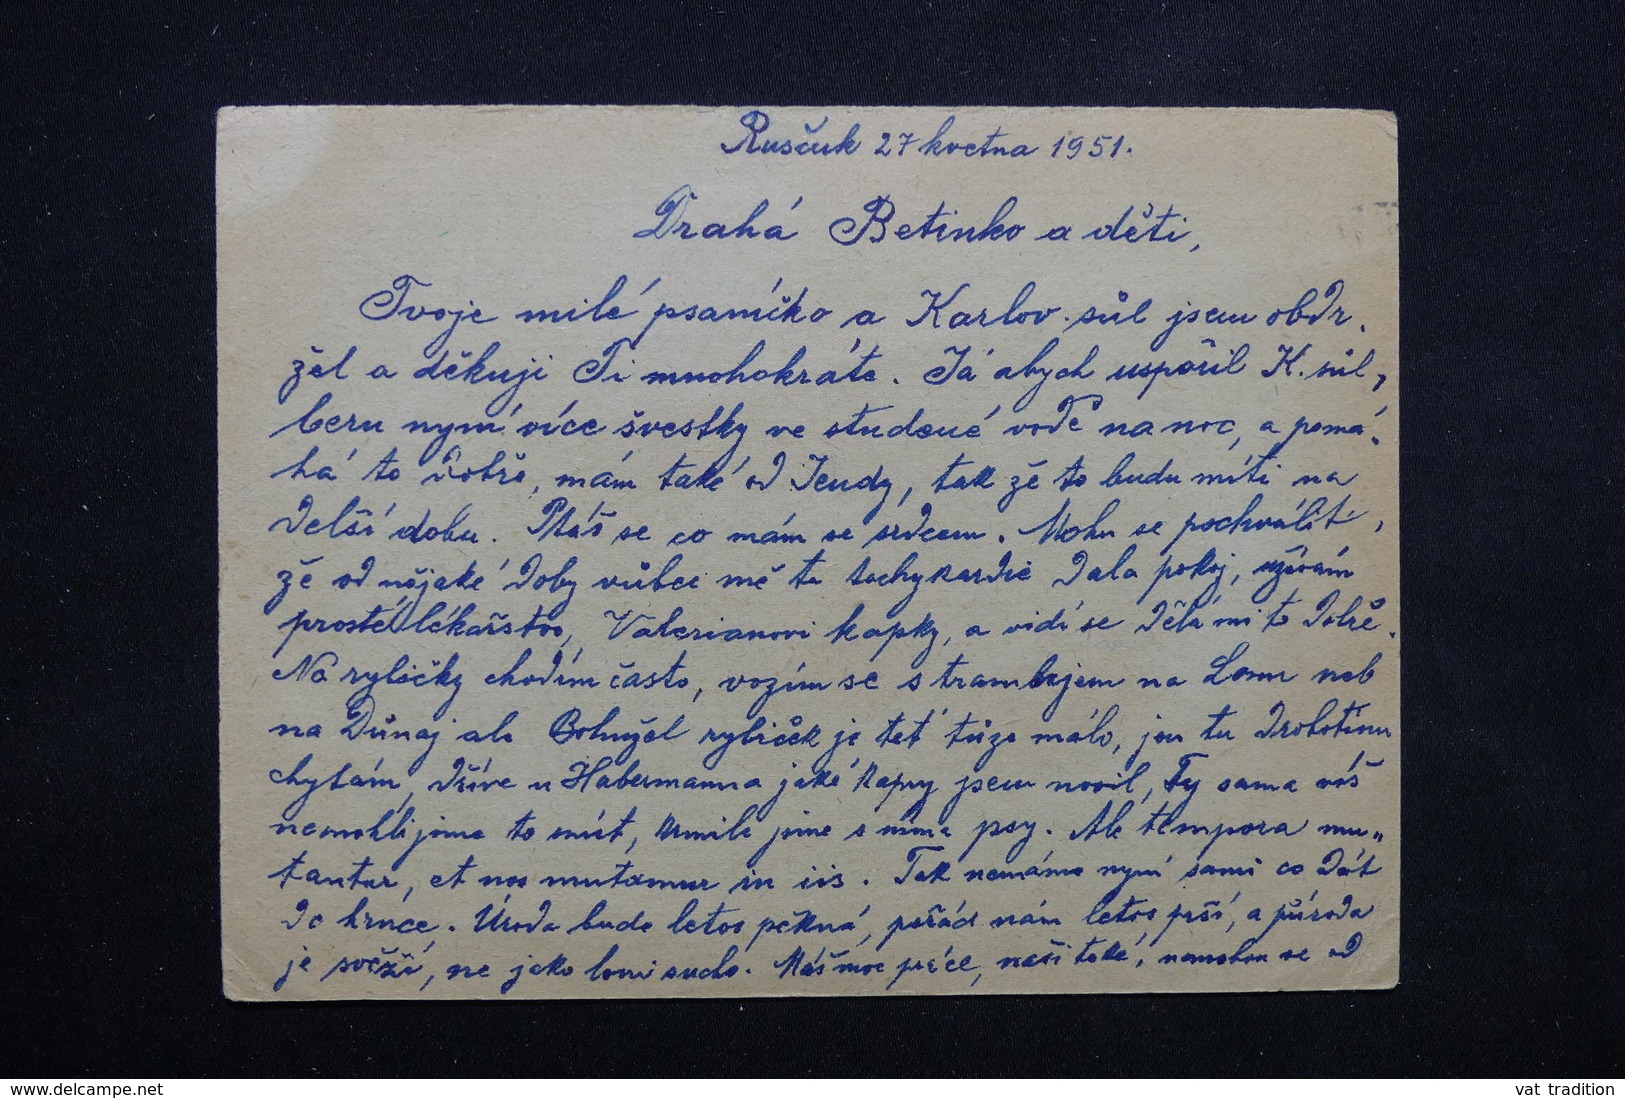 Rusčuk 27 května 1951.
Drahá Betinko a děti,
Tvoje milé psaníčko a Karlov. sůl jsem obdr.
žel a děkuji Ti mnohokráte. Já abych uspořil K. sůl,
beru nyní více švestky ve studené vodě na noc, a pomá.
há to dobře, mám také od Jendy, tak že to budu míti na
delší dobu. Ptáš se co mám se srdcem. Mohu se pochválit,
že od nějaké doby vůbec mě ta tachykardie dala pokoj, užívám
prosté lékařstvo, Valerianovi kapky, a vidí se dělá mi to dobře.
Na rybičky chodím často, vozím se s trambajem na Lom neb
na Dunaj ale bohužel rybiček je teť tůze málo, jen tu drobotinu
chytám, dříve u Habermanna jaké kapry jsem nosil, Ty sama víš
nemohli jsme to sníst, krmili jsme s nima psy. Ale tempora mu„
tantur, et nos mutamur in iis. Tak nemáme nyní sami co dát
do hrnce. Úroda bude letos pěkná, pořád nám letos prší, a příroda
je svěží, ne jako loni sucho. Máš moc práce, naši také, nemohou se od
www.delcampe.net
vat tradition